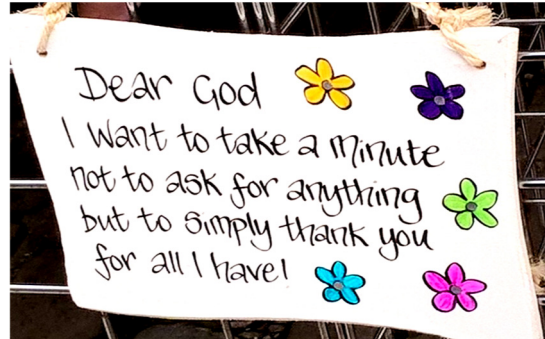 Dear God
I want to take a minute
not to ask for anything
but to simply thank you
for all I have!